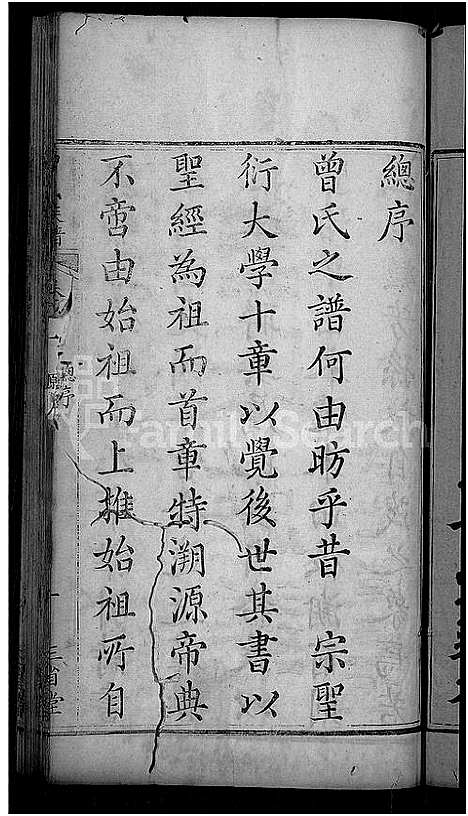 總序
曾氏之譜何由昉乎昔　宗聖
衍大學十章以覺後世其書以
聖經為祖而首章特溯源帝典
不啻由始祖而上推始祖所自
總序
三省堂
FamilySearch